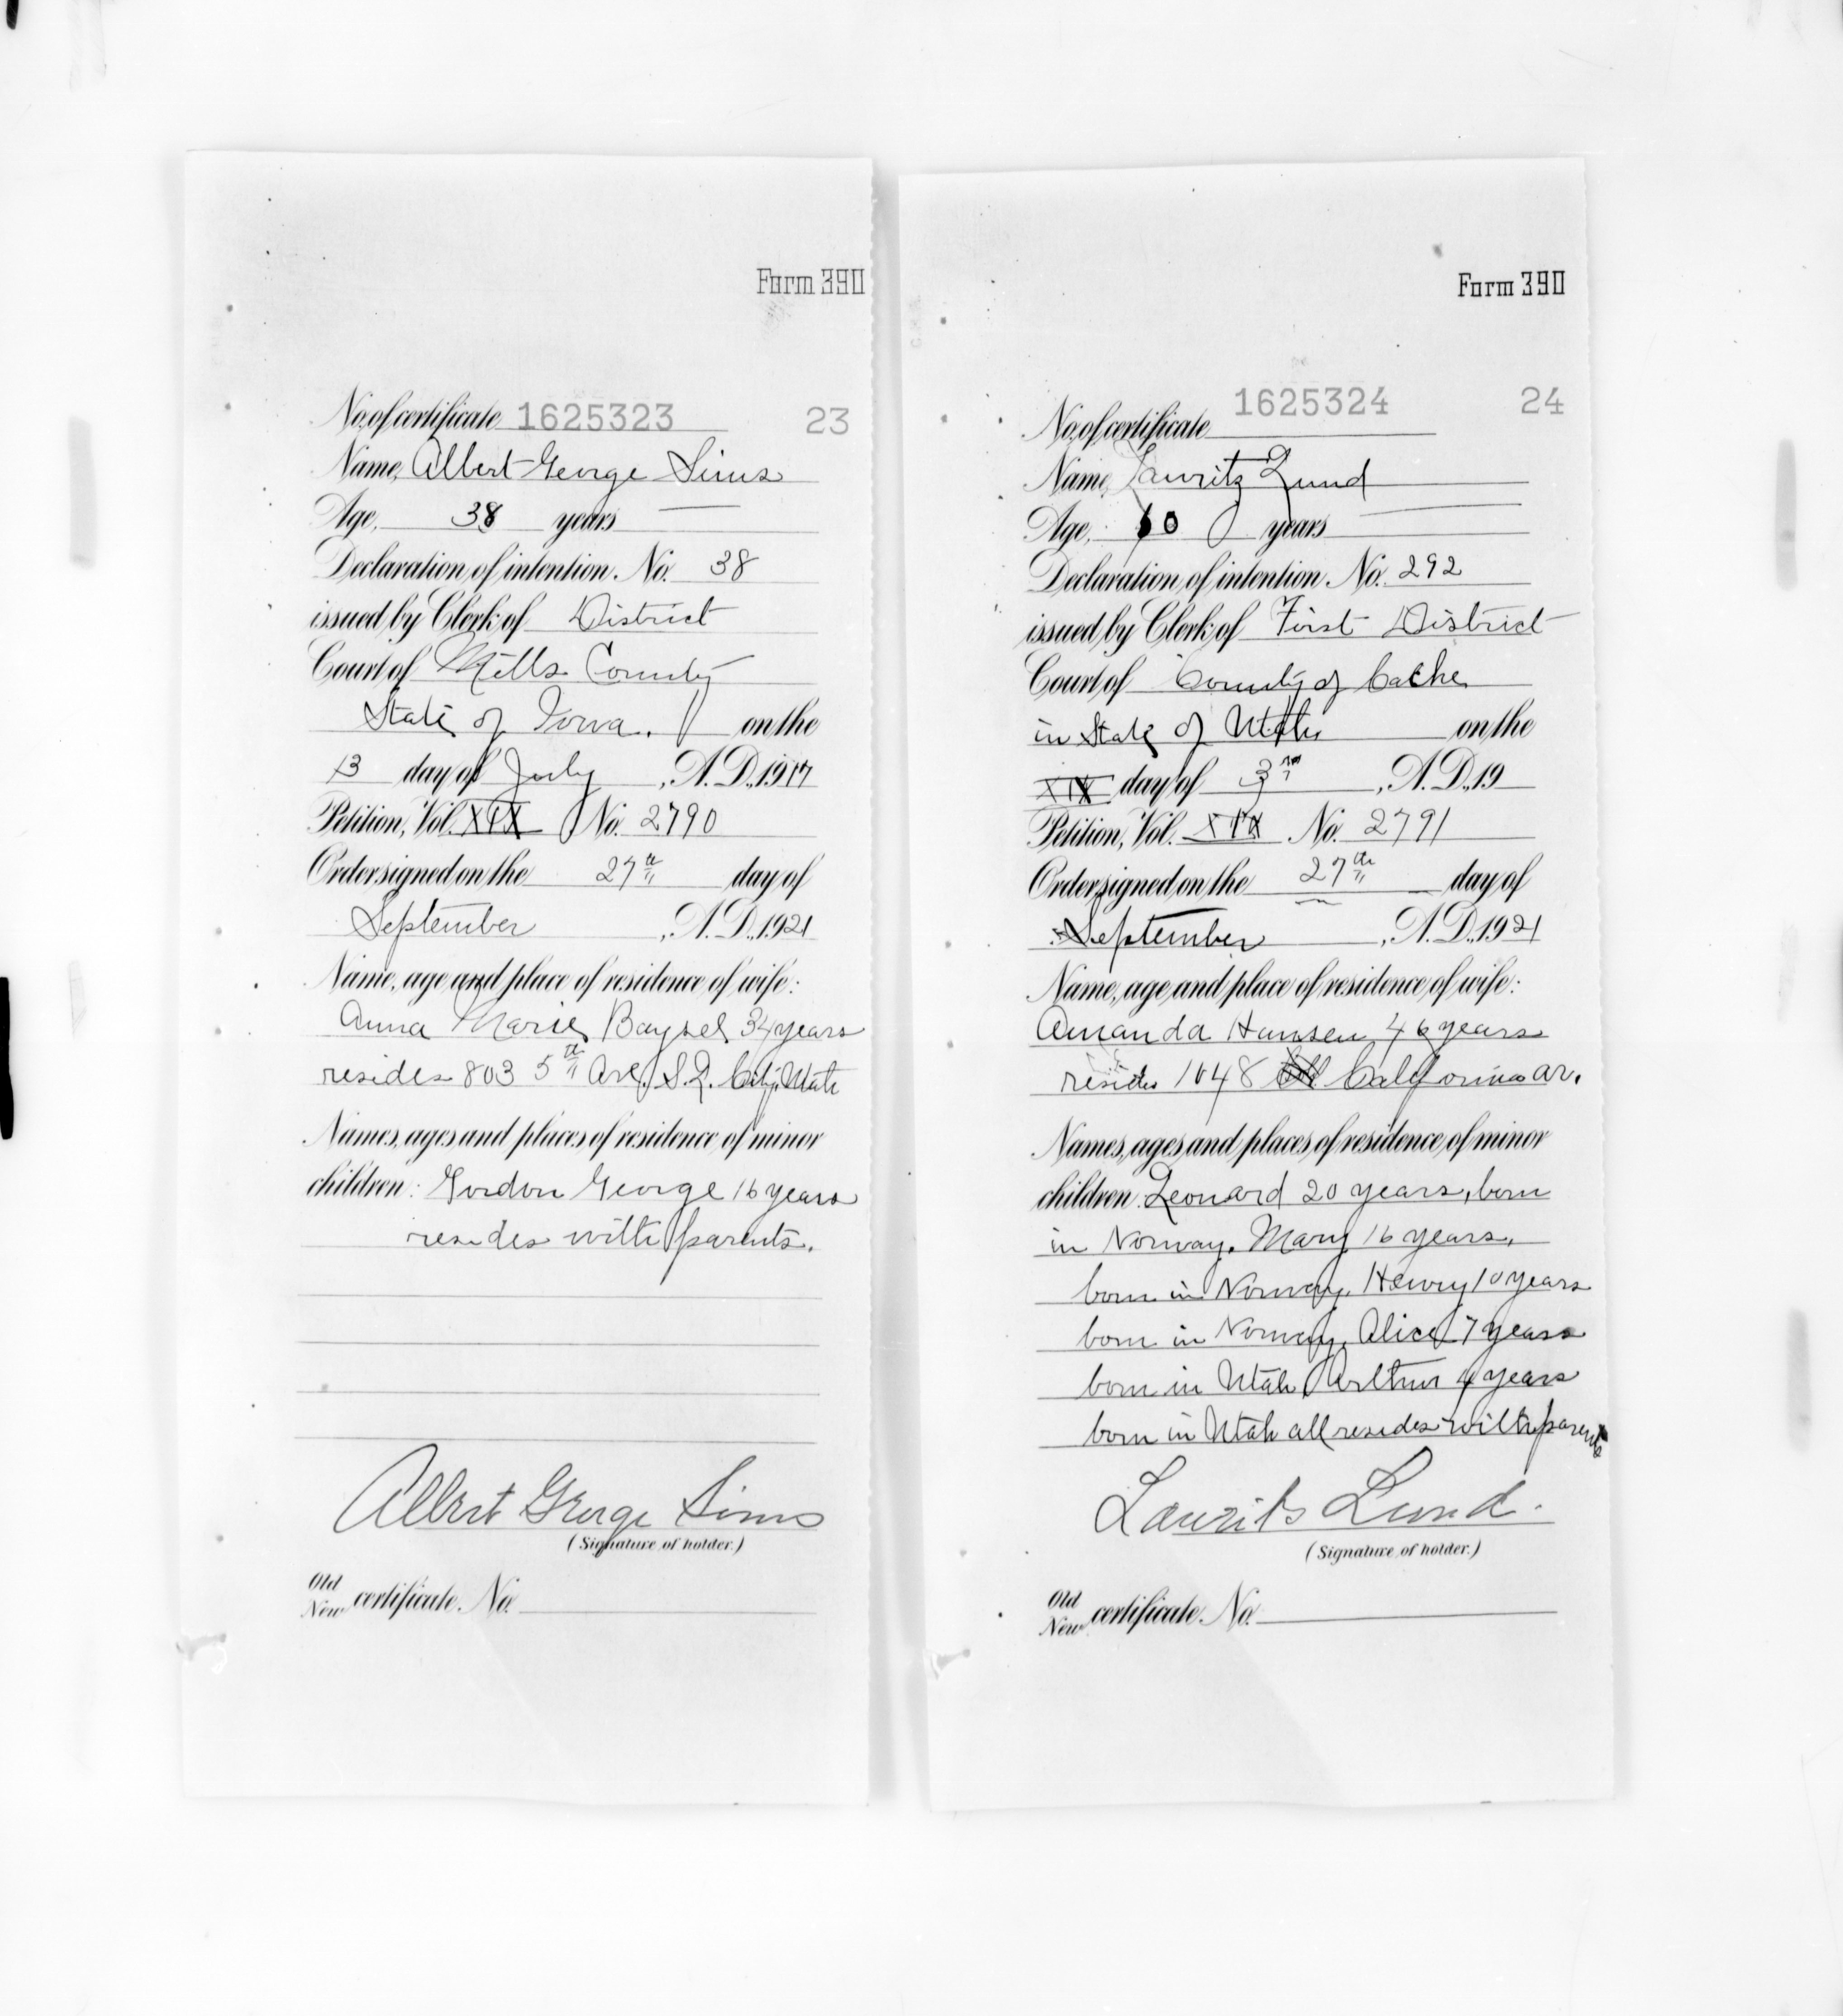 Form 390
No. of certificate 1625323 23
Name, Albert George Sims
Age, 38 years
Declaration of intention. No. 38
issued by Clerk of District
Court of Mills County
State of Iowa. on the
13 day of July, A. D., 1917
Petition, Vol. XIX No. 2790
Order signed on the 27th day of
September, A. D., 1921
Name, age and place of residence of wife:
Anna Marie 34 years
resides 803 5th Ave. S. L. City, Utah
Names, ages and places of residence of minor
children: Gordon George 16 years
resides with parents.
Albert George Sims
(Signature of holder.)
Old
New certificate. No.
Form 390
No. of certificate 1625324 24
Name, Lauritz Lund
Age, 60 years
Declaration of intention. No. 292
issued by Clerk of First District
Court of County of Cache
in State of Utah on the
XIX day of 3rd, A. D., 19
Petition, Vol. XIX No. 2791
Order signed on the 27th day of
September, A. D., 1921
Name, age and place of residence of wife:
Amanda Hansen 46 years
resides 1048 California av.
Names, ages and places of residence of minor
children: Leonard 20 years, born
in Norway. Mary 16 years,
born in Norway, Henry 10 years
born in Norway, Alice 7 years
born in Utah, Arthur 4 years
born in Utah all resides with parents
Laurits Lund.
(Signature of holder.)
Old
New certificate. No.